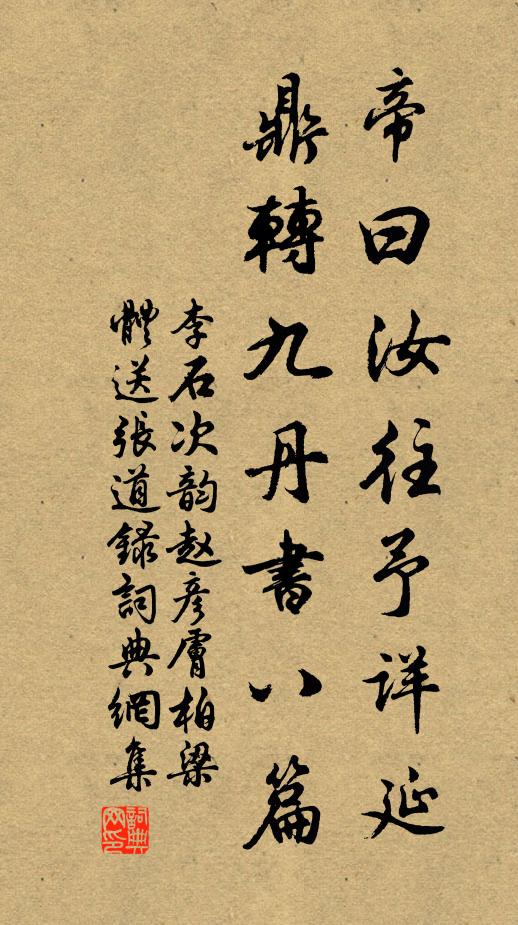 帝曰汝往予詳延
鼎轉九丹書八篇
李石次韵赵彦膚柏梁
體送張道録詞典網集
詞典网印